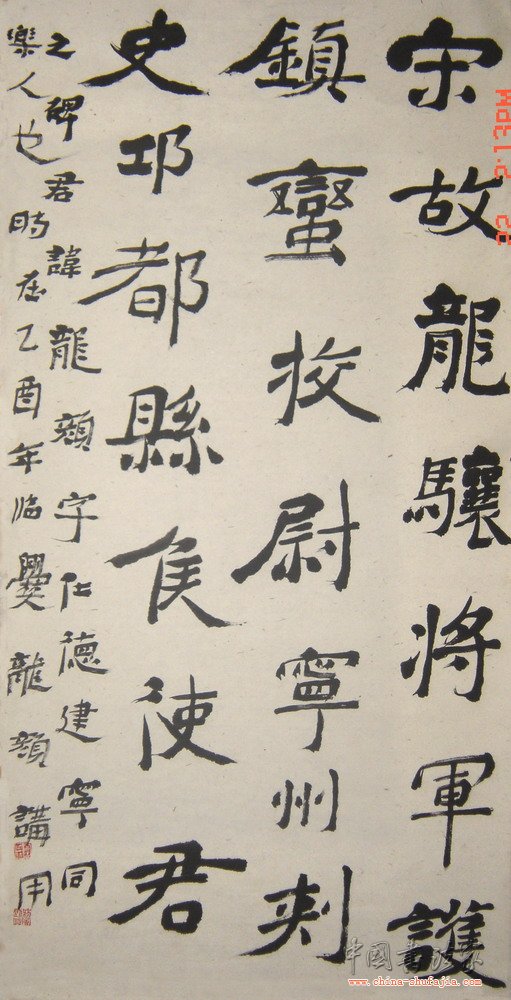 宋故龍驤將軍護
鎮蠻挍尉寧州刺
史邛都縣侯使君
之碑君諱龍顏字仕德建寧同
樂人也時在乙酉年臨爨龍顏講用
中國書法家
www.china-shufajia.com